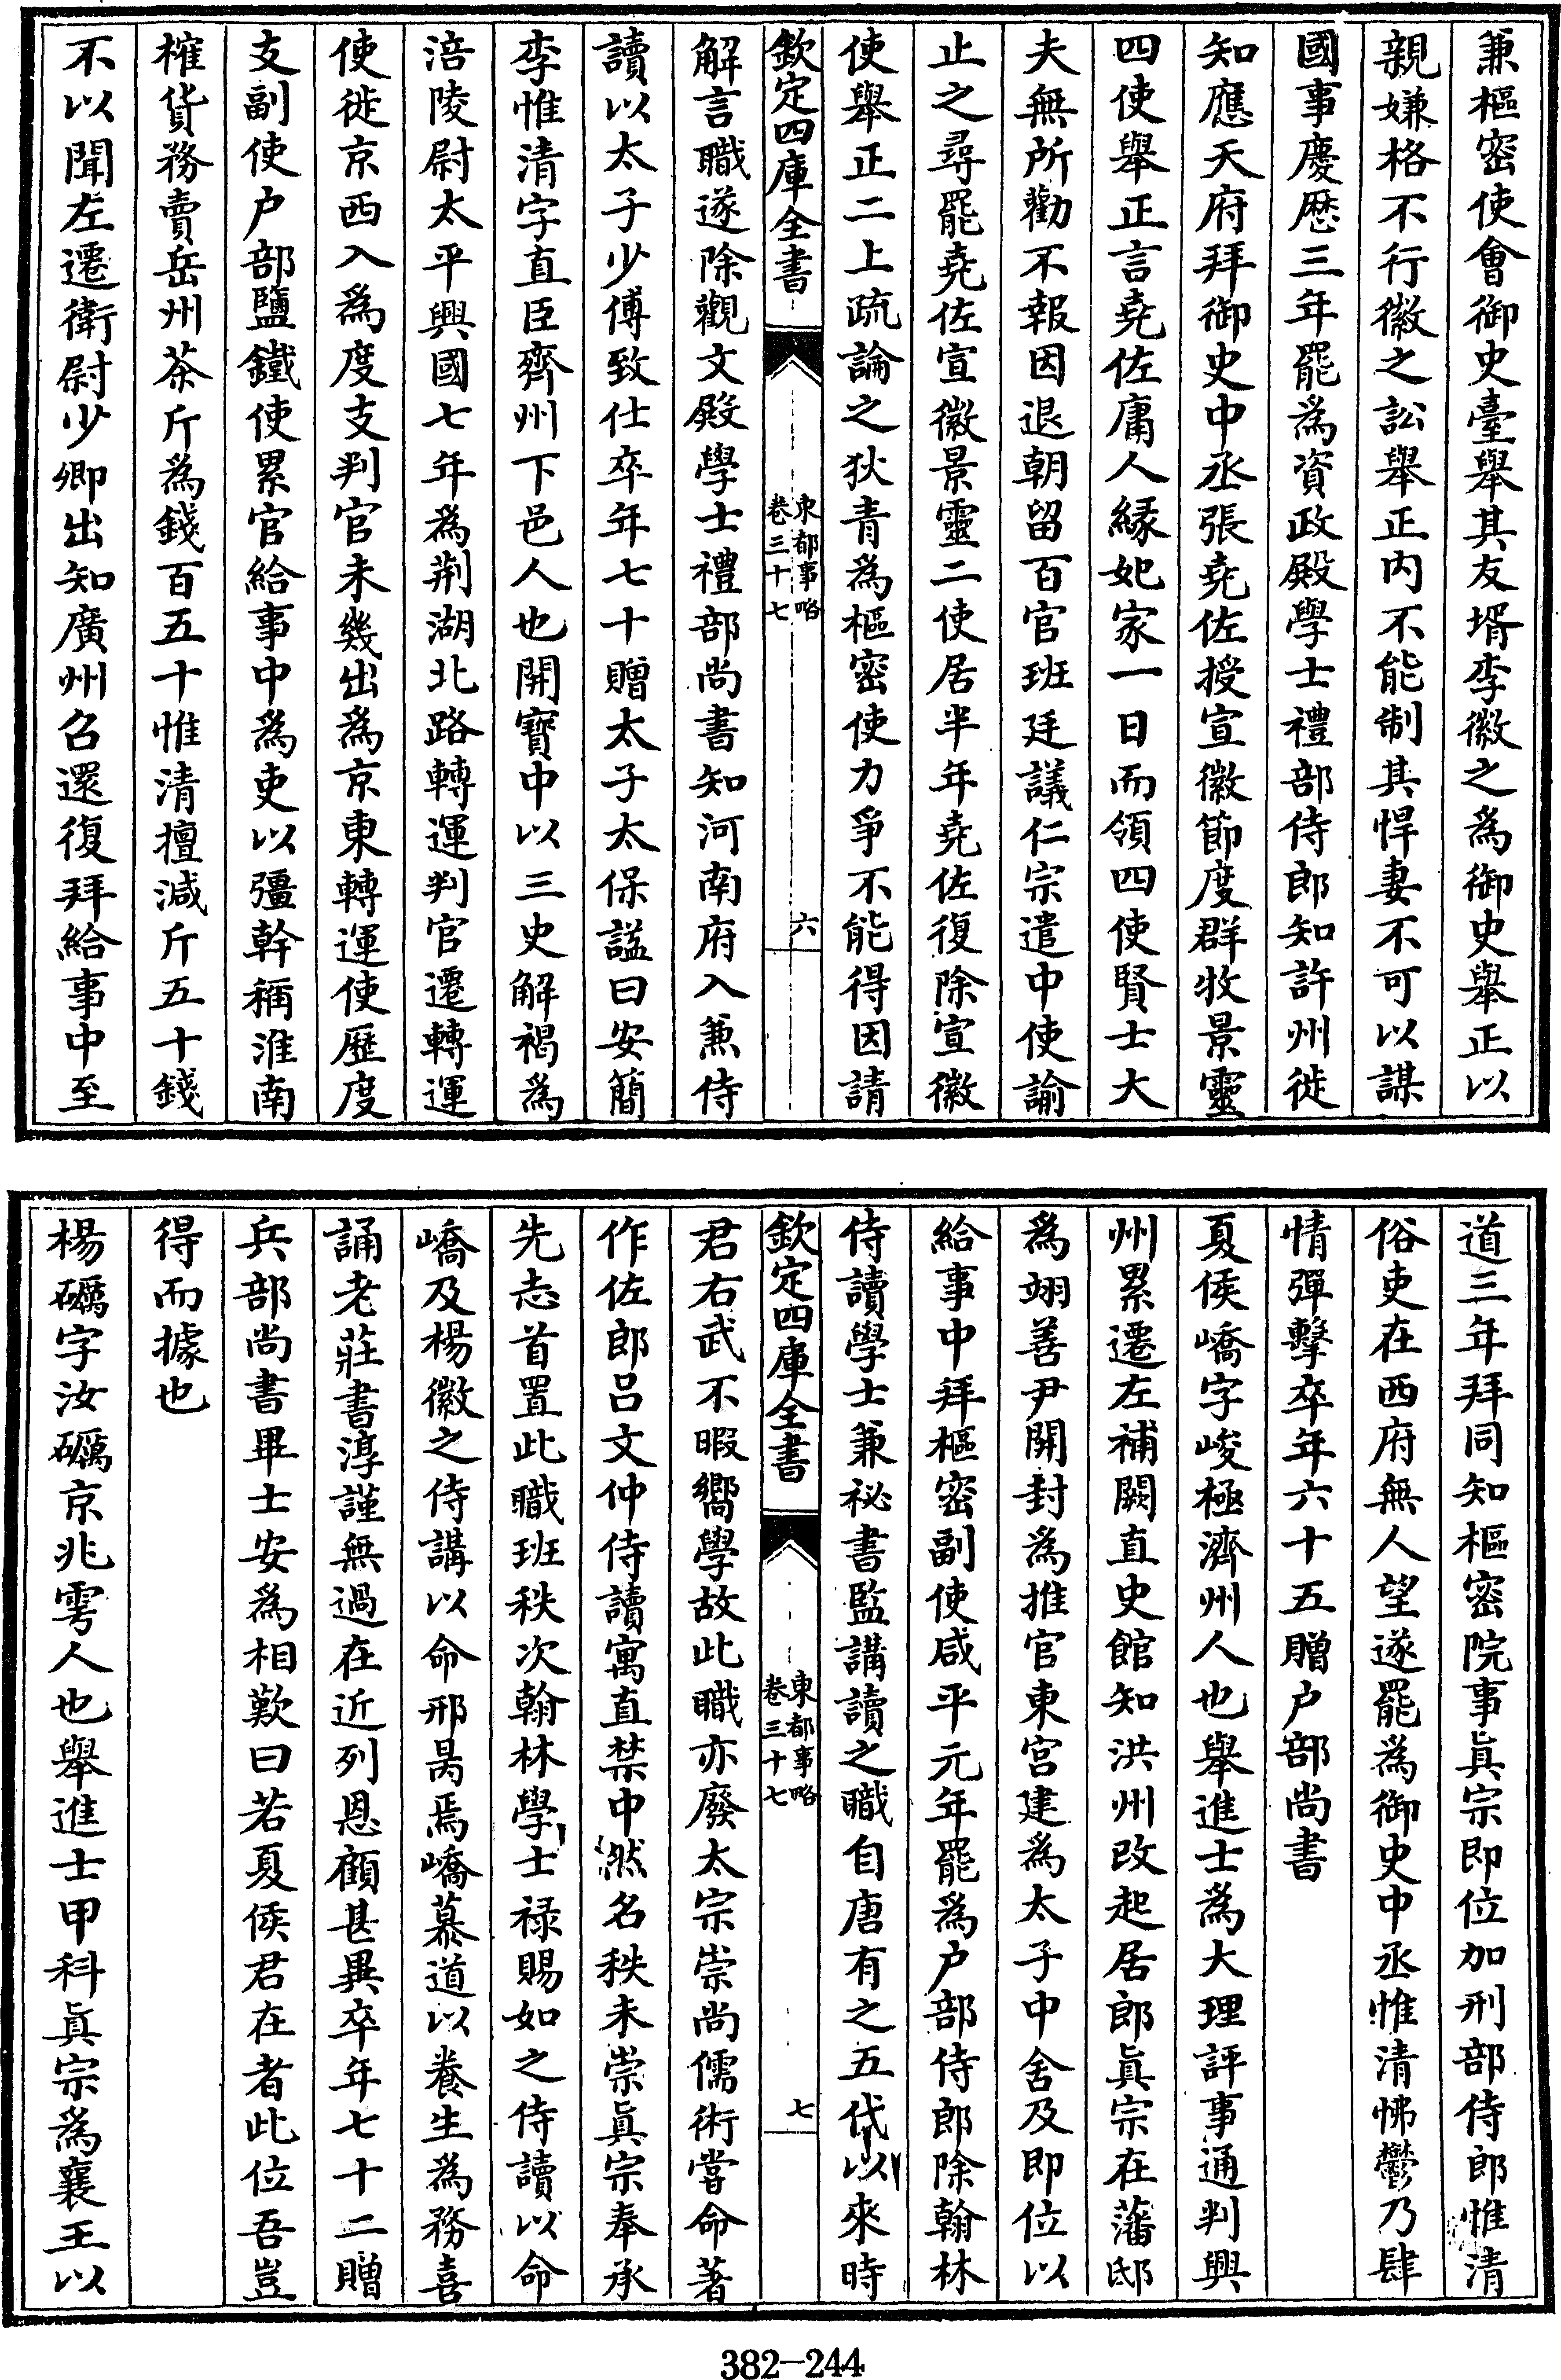 兼樞密使會御史臺舉其友壻李徽之為御史舉正以
親嫌格不行徽之訟舉正内不能制其悍妻不可以謀
國事慶歴三年罷為資政殿學士禮部侍郎知許州徙
知應天府拜御史中丞張堯佐授宣徽節度群牧景靈
四使舉正言堯佐庸人緣妃家一日而領四使賢士大
夫無所勸不報因退朝留百官班廷議仁宗遣中使諭
止之尋罷堯佐宣徽景靈二使居半年堯佐復除宣徽
使舉正二上疏論之狄青為樞密使力爭不能得因請
欽定四庫全書
東都事略
卷三十七
六
解言職遂除觀文殿學士禮部尚書知河南府入兼侍
讀以太子少傅致仕卒年七十贈太子太保諡曰安簡
李惟清字直臣齊州下邑人也開寶中以三史解褐為
涪陵尉太平興國七年為荆湖北路轉運判官遷轉運
使徙京西入為度支判官未幾出為京東轉運使歴度
支副使户部鹽鐵使累官給事中為吏以彊幹稱淮南
榷貨務賣岳州茶斤為錢百五十惟清擅減斤五十錢
不以聞左遷衛尉少卿出知廣州召還復拜給事中至
道三年拜同知樞密院事眞宗即位加刑部侍郎惟清
俗吏在西府無人望遂罷為御史中丞惟清怫鬱乃肆
情彈擊卒年六十五贈户部尚書
夏侯嶠字峻極濟州人也舉進士為大理評事通判興
州累遷左補闕直史館知洪州改起居郎眞宗在藩邸
為翊善尹開封為推官東宫建為太子中舍及即位以
給事中拜樞密副使咸平元年罷為户部侍郎除翰林
侍讀學士兼祕書監講讀之職自唐有之五代以來時
欽定四庫全書
東都事略
卷三十七
七
君右武不暇嚮學故此職亦廢太宗崇尚儒術嘗命著
作佐郎吕文仲侍讀寓直禁中然名秩未崇眞宗奉承
先志首置此職班秩次翰林學士禄賜如之侍讀以命
嶠及楊徽之侍講以命邢昺焉嶠慕道以養生為務喜
誦老莊書淳謹無過在近列恩顧甚異卒年七十二贈
兵部尚書畢士安為相歎曰若夏侯君在者此位吾豈
得而據也
楊礪字汝礪京兆雩人也舉進士甲科眞宗為襄王以
382-244